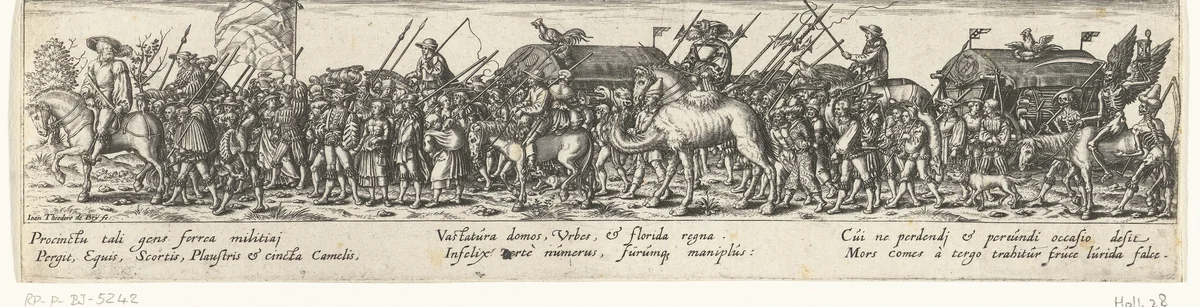 Ioan Theodore de Bry fe:
Procinctu tali gens ferrea militiaj
Pergit, Equis, Scortis, Plaustris & cincta Camelis,
Vastatura domos, Vrbes, & florida regna.
Infelix certe numerus, furumq maniplus:
Cui ne perdendj & pereundi occasio desit
Mors comes à tergo trahitur truce lurida falce.
RP-P-BJ-5242
Holl. 28